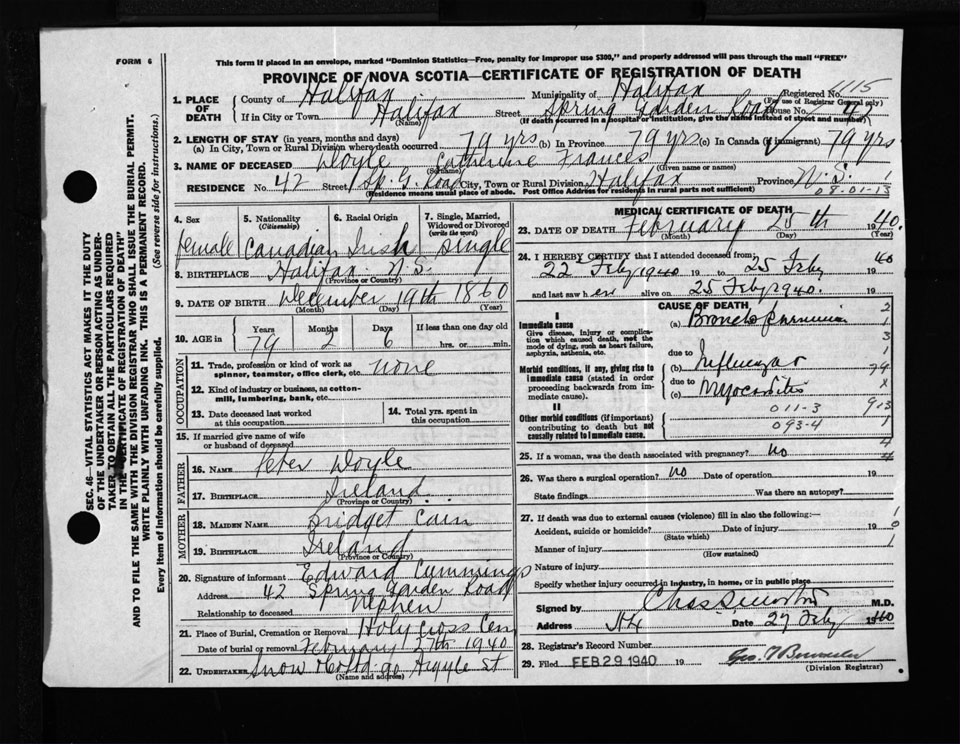 FORM 6
This form if placed in an envelope, marked "Dominion Statistics—Free, penalty for improper use $300," and properly addressed will pass through the mail "FREE"
PROVINCE OF NOVA SCOTIA—CERTIFICATE OF REGISTRATION OF DEATH
SEC. 46—VITAL STATISTICS ACT MAKES IT THE DUTY
OF THE UNDERTAKER OR PERSON ACTING AS UNDER-
TAKER TO OBTAIN ALL THE PARTICULARS REQUIRED
IN THE "CERTIFICATE OF REGISTRATION OF DEATH"
AND TO FILE THE SAME WITH THE DIVISION REGISTRAR WHO SHALL ISSUE THE BURIAL PERMIT.
WRITE PLAINLY WITH UNFADING INK. THIS IS A PERMANENT RECORD.
Every item of Information should be carefully supplied. (See reverse side for instructions.)
1. PLACE OF DEATH
County of Halifax Municipality of Halifax Registered No. 1115
(For use of Registrar General only)
If in City or Town Halifax Street Spring Garden Road House No. 42
(Name) (If death occurred in a hospital or institution, give the name instead of street and number)
2. LENGTH OF STAY (in years, months and days)
(a) In City, Town or Rural Division where death occurred 79 yrs (b) In Province 79 yrs (c) In Canada (if immigrant) 79 yrs
3. NAME OF DECEASED Doyle Catherine Frances
(Surname) (Given name or names)
RESIDENCE No. 42 Street Sp. G. Road City, Town or Rural Division Halifax Province N.S. 1
(Residence means usual place of abode. Post Office Address for residents in rural parts not sufficient) 08-01-13
4. Sex
female
5. Nationality
(Citizenship)
Canadian
6. Racial Origin
Irish
7. Single, Married, Widowed or Divorced
(write the word)
single
8. BIRTHPLACE Halifax N.S.
(Province or Country)
9. DATE OF BIRTH December 19th 1860
(Month) (Day) (Year)
10. AGE in Years 79 Months 2 Days 6 If less than one day old
hrs. or min.
OCCUPATION
11. Trade, profession or kind of work as
spinner, teamster, office clerk, etc. none
12. Kind of industry or business, as cotton-
mill, lumbering, bank, etc.
13. Date deceased last worked
at this occupation
14. Total yrs. spent in
this occupation
15. If married give name of wife
or husband of deceased
FATHER
16. NAME Peter Doyle
17. BIRTHPLACE Ireland
(Province or Country)
MOTHER
18. MAIDEN NAME Bridget Cain
19. BIRTHPLACE Ireland
(Province or Country)
20. Signature of informant Edward Cummings
Address 42 Spring Garden Road
Relationship to deceased Nephew
21. Place of Burial, Cremation or Removal Holy Cross Cem
Date of burial or removal February 27th 1940
22. UNDERTAKER Snow 90 Argyle St
(Name and address)
MEDICAL CERTIFICATE OF DEATH
23. DATE OF DEATH February 25th 1940.
(Month) (Day) (Year)
24. I HEREBY CERTIFY that I attended deceased from:
22 Feby 1940 19 to 25 Feby 1940
and last saw her alive on 25 Feby 1940. 19
CAUSE OF DEATH
I
Immediate cause
Give disease, injury or complica-
tion which caused death, not the
mode of dying, such as heart failure,
asphyxia, asthenia, etc.
(a) Broncho pneumonia
due to
Morbid conditions, if any, giving rise to
immediate cause (stated in order
proceeding backwards from im-
mediate cause).
(b) Influenza
due to
(c) Myocarditis
II
Other morbid conditions (if important)
contributing to death but not
causally related to immediate cause.
011-3
093-4
25. If a woman, was the death associated with pregnancy? no
26. Was there a surgical operation? no Date of operation 19
State findings Was there an autopsy?
27. If death was due to external causes (violence) fill in also the following:—
Accident, suicide or homicide? Date of injury 19
(State which)
Manner of injury
(How sustained)
Nature of injury
Specify whether injury occurred in industry, in home, or in public place
Signed by M.D.
Address Hfx Date 27 Feby 1940
28. Registrar's Record Number
29. Filed FEB 29 1940 19
(Division Registrar)